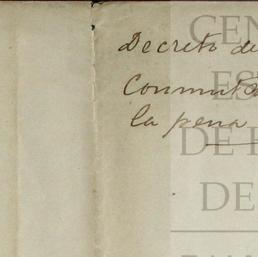 Decreto de
Conmuta
la pena
CEN
ES
DE E
DE